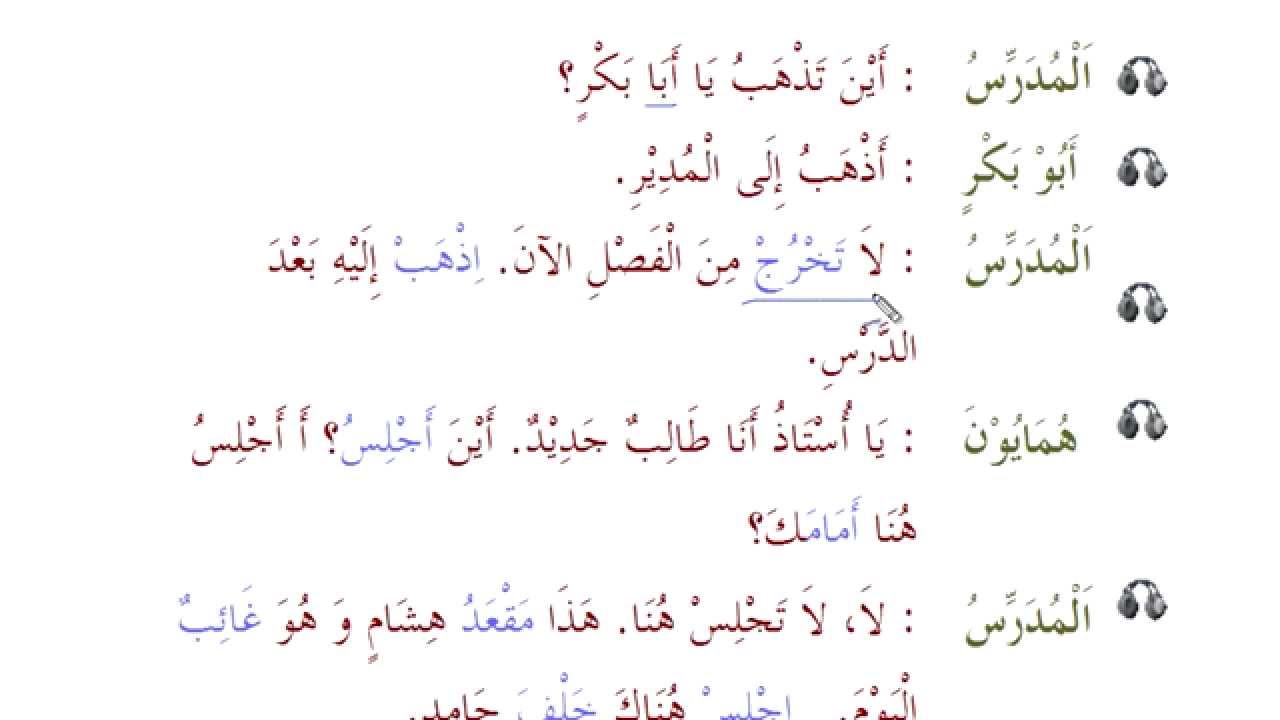 اَلْمُدَرِّسُ : أَيْنَ تَذْهَبُ يَا أَبَا بَكْرٍ؟
أَبُوْ بَكْرٍ : أَذْهَبُ إِلَى الْمُدِيْرِ.
اَلْمُدَرِّسُ : لاَ تَخْرُجْ مِنَ الْفَصْلِ الآنَ. اِذْهَبْ إِلَيْهِ بَعْدَ
الدَّرْسِ.
هُمَايُوْنَ : يَا أُسْتَاذُ أَنَا طَالِبٌ جَدِيْدٌ. أَيْنَ أَجْلِسُ؟ أَ أَجْلِسُ
هُنَا أَمَامَكَ؟
اَلْمُدَرِّسُ : لاَ، لاَ تَجْلِسْ هُنَا. هَذَا مَقْعَدُ هِشَامٍ وَ هُوَ غَائِبٌ
الْيَوْمَ. اِجْلِسْ هُنَاكَ خَلْفَ حَامِدٍ.